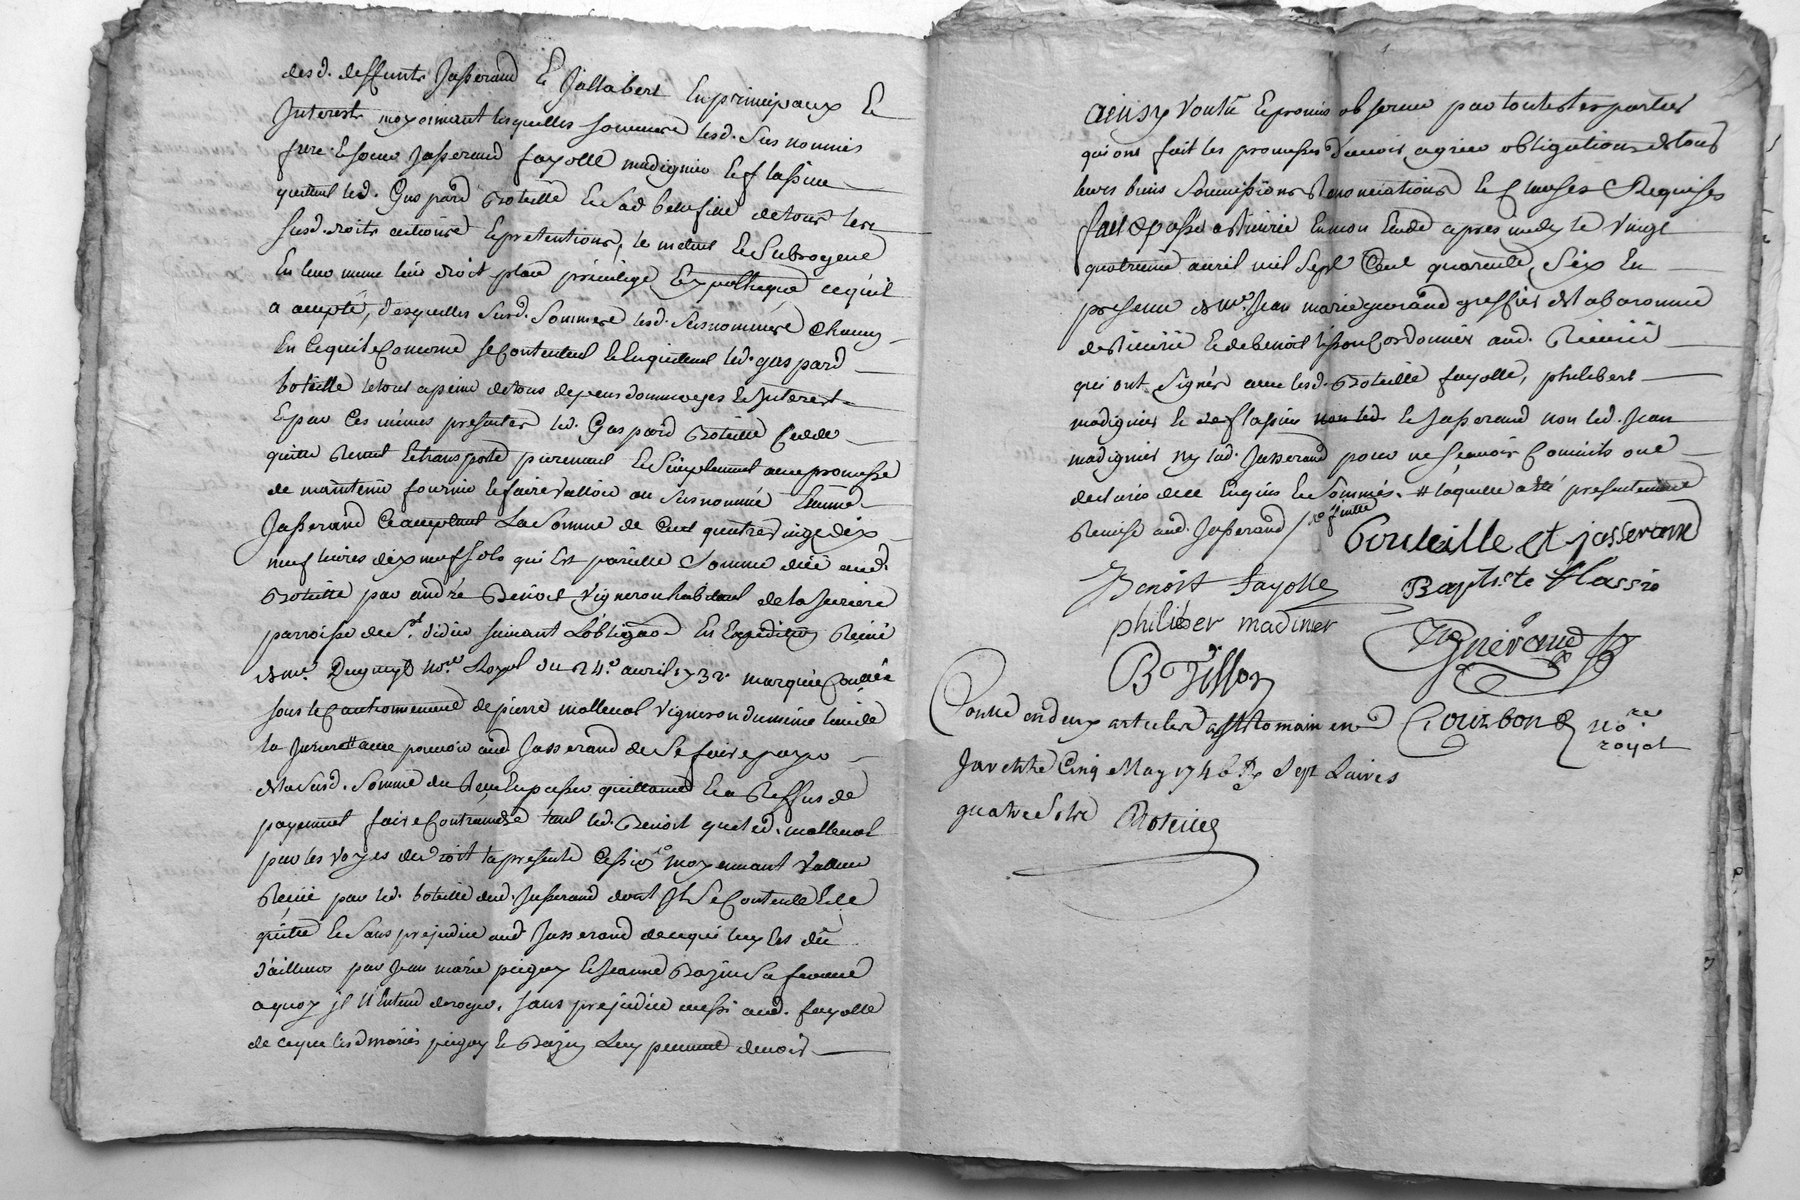 desd. deffunts Jasserand Et Jallabert En principaux Et
Interest moyennant lesquelles sommes lesd. sus nommés
frere Et soeur Jasserand fayolle madignier Et flassieu
quittent led. Gaspard Boteille Et sad belle fille de tous leurs
susd. droits actions Et pretentions, le mettent Et subrogent
En leur meme lieu droit place privilege Et hypotheque ce qu'il
a accepté, desquelles susd. sommes lesd. susnommés Chacun
En ce qui le Concerne se Contentent Et En quittent led. gaspard
boteille le tout a peine de tous depens dommages Et Interest
Et par Ces memes presentes led. Gaspard Boteille Cedde
quitte Remet Et transporte purement Et simplement avec promesse
de maintenir fournir Et faire valloir au susnommé
Jasserand Ce acceptant La somme de Cent quatre vingt dix
neuf livres dix neuf sols qui Est pareille somme düe aud.
Boteille par andré Benoit Vigneron habitant de la
parroisse de St. didier suivant L'obligaon En Expedition
de me. no.re Royal du 24e. avril 1732.
sous le Cautionnement de pierre mattenal Vigneron du meme lieu de
la avec pouvoir aud. Jasserand de se faire payer
de la susd. somme du Et passer quittance Et a Reffus de
payement faire Contraindre tant led. Benoit que led. mattenal
par les voyes de droit la presente Cession moyennant Valleur
Recüe par led. boteille dud. Jasserand dont Il se Contente Et le
quitte Et sans prejudice aud. Jasserand de ce qui luy Est dû
d'ailleurs par Jean marie pugny Et Jeanne Bazin sa femme
a quoy il N'Entend deroger, sans prejudice aussi aud. fayolle
de ce que lesd mariés pugny Et Bazin Luy peuvent devoir
ainsy Voulû Et promis observer par toutes les parties
qui ont fait les promesses d'avoir agrée obligations de tous
leurs biens soumissions Renonciations Et Clauses Requises
fait Et passé a Riverie En mon Etude apres midy le Vingt
quatrieme avril mil sept Cent quarente, six En
presence de me. Jean marie guerand greffier de la baronnie
de Riverie Et de benoit tisson Cordonnier aud. Riverie
qui ont signés avec lesd. Boteille fayolle, philibert
madignier Et flassieu Et Jasserand non led. Jean
madignier ny lad. Jasserand pour ne scavoir Comme ils ont
declarés de ce Enquis Et Sommés. # laquelle a été presentement
Remise aud. Jasserand
Bouteille et josserand
Benoit Fayolle Baptiste Flassio
philiber madinier
Guerand
B Tisson
Controllé en deux articles a St Romain en Gourbon no.re royal
Jaret le Cinq May 1746 Reçu Sept Livres
quatre Sols